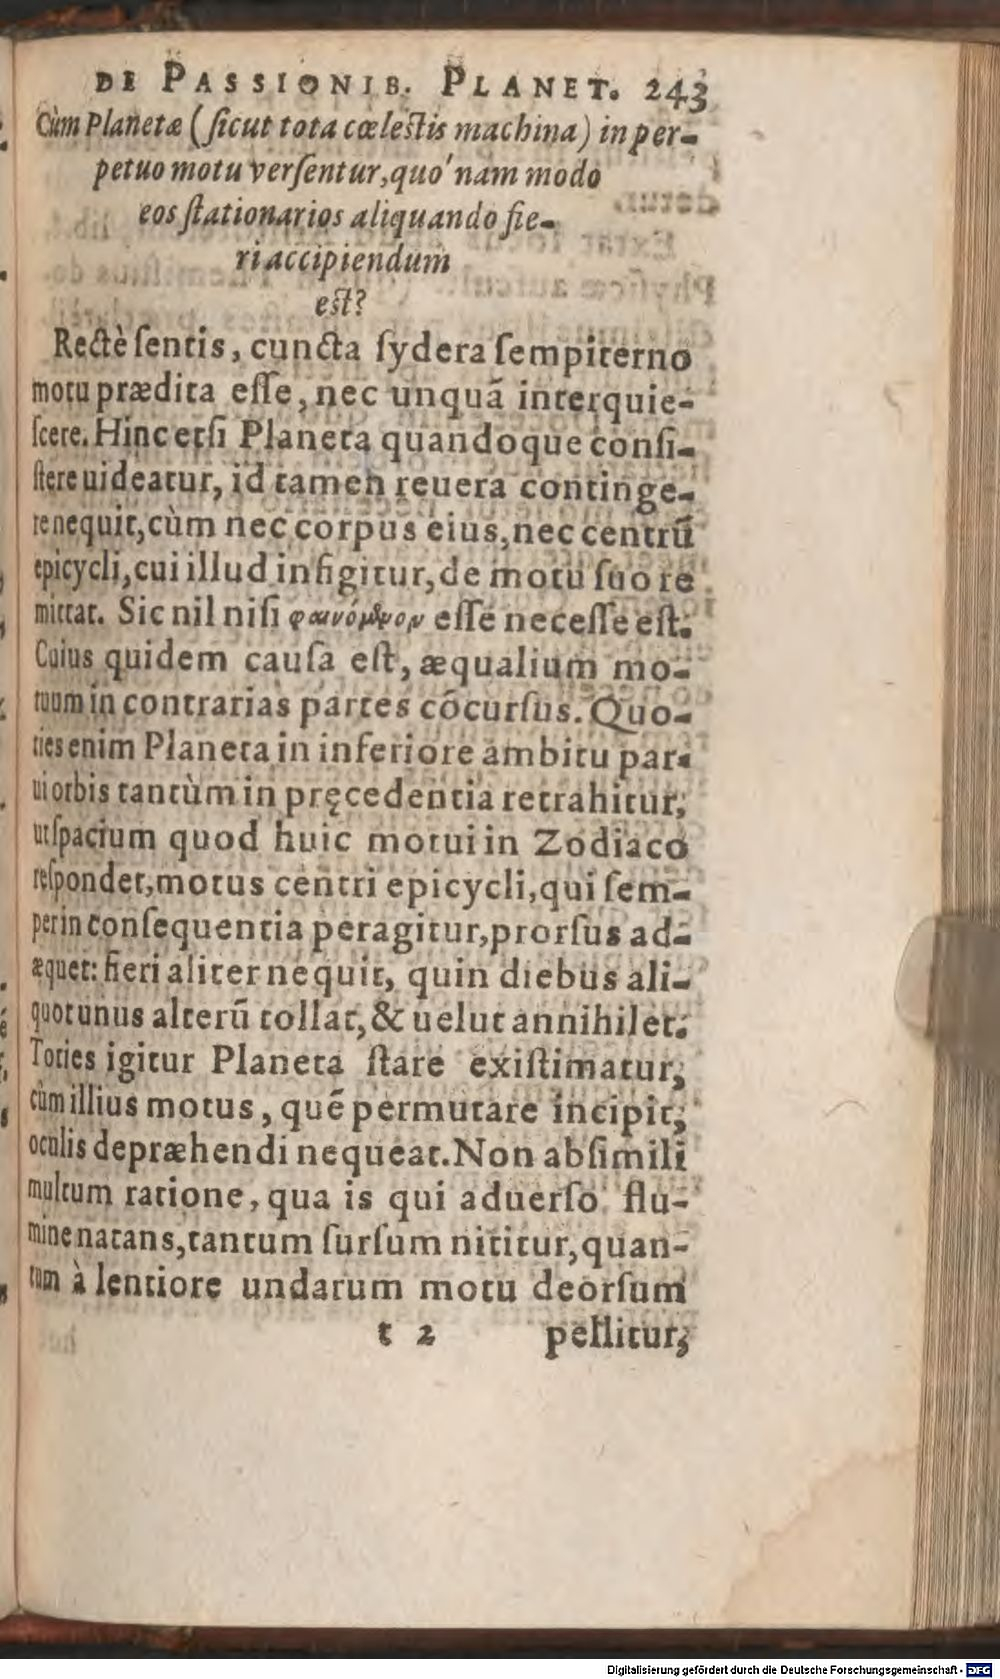 DE PASSIONIB. PLANET. 243
Cùm Planetæ (ſicut tota cœleſtis machina) in per-
petuo motu verſentur, quo'nam modo
eos ſtationarios aliquando fie-
ri accipiendum
eſt?
Rectè ſentis, cuncta ſydera ſempiterno
motu prædita eſſe, nec unquã interquie-
ſcere. Hinc etſi Planeta quandoque conſi-
ſtere uideatur, id tamen reuera continge-
re nequit, cùm nec corpus eius, nec centrũ
epicycli, cui illud infigitur, de motu ſuo re
mittat. Sic nil niſi φαινόμενον eſſe neceſſe eſt.
Cuius quidem cauſa eſt, æqualium mo-
tuum in contrarias partes cõcurſus. Quo-
ties enim Planeta in inferiore ambitu par-
ui orbis tantùm in pręcedentia retrahitur,
ut ſpacium quod huic motui in Zodiaco
reſpondet, motus centri epicycli, qui ſem-
per in conſequentia peragitur, prorſus ad-
æquet: fieri aliter nequit, quin diebus ali-
quot unus alterũ tollat, & uelut annihilet.
Toties igitur Planeta ſtare exiſtimatur,
cùm illius motus, quẽ permutare incipit,
oculis depræhendi nequeat. Non abſimili
multum ratione, qua is qui aduerſo flu-
mine natans, tantum ſurſum nititur, quan-
tum à lentiore undarum motu deorſum
t 2 pellitur,
Digitalisierung gefördert durch die Deutsche Forschungsgemeinschaft - DFG